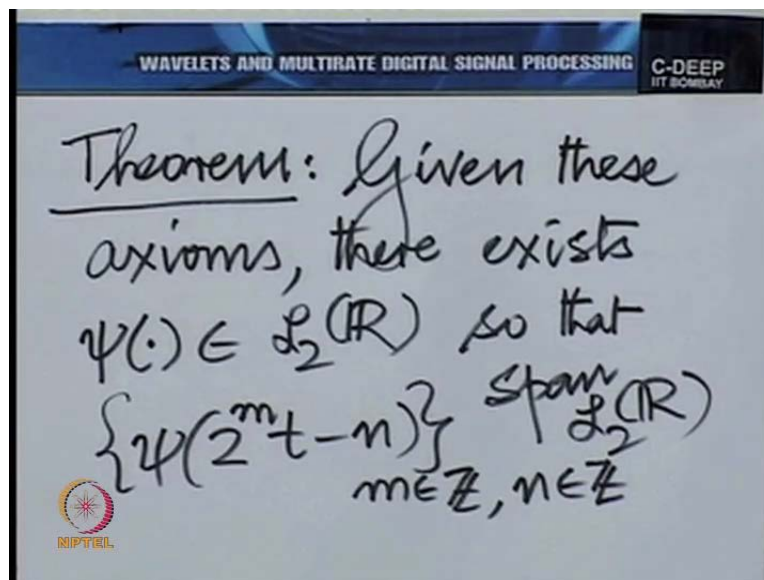 WAVELETS AND MULTIRATE DIGITAL SIGNAL PROCESSING
C-DEEP
IIT BOMBAY
Theorem: Given these
axioms, there exists
ψ(·) ∈ ℒ₂(ℝ) so that
{ψ(2ᵐt-n)} span ℒ₂(ℝ)
m∈ℤ, n∈ℤ
NPTEL